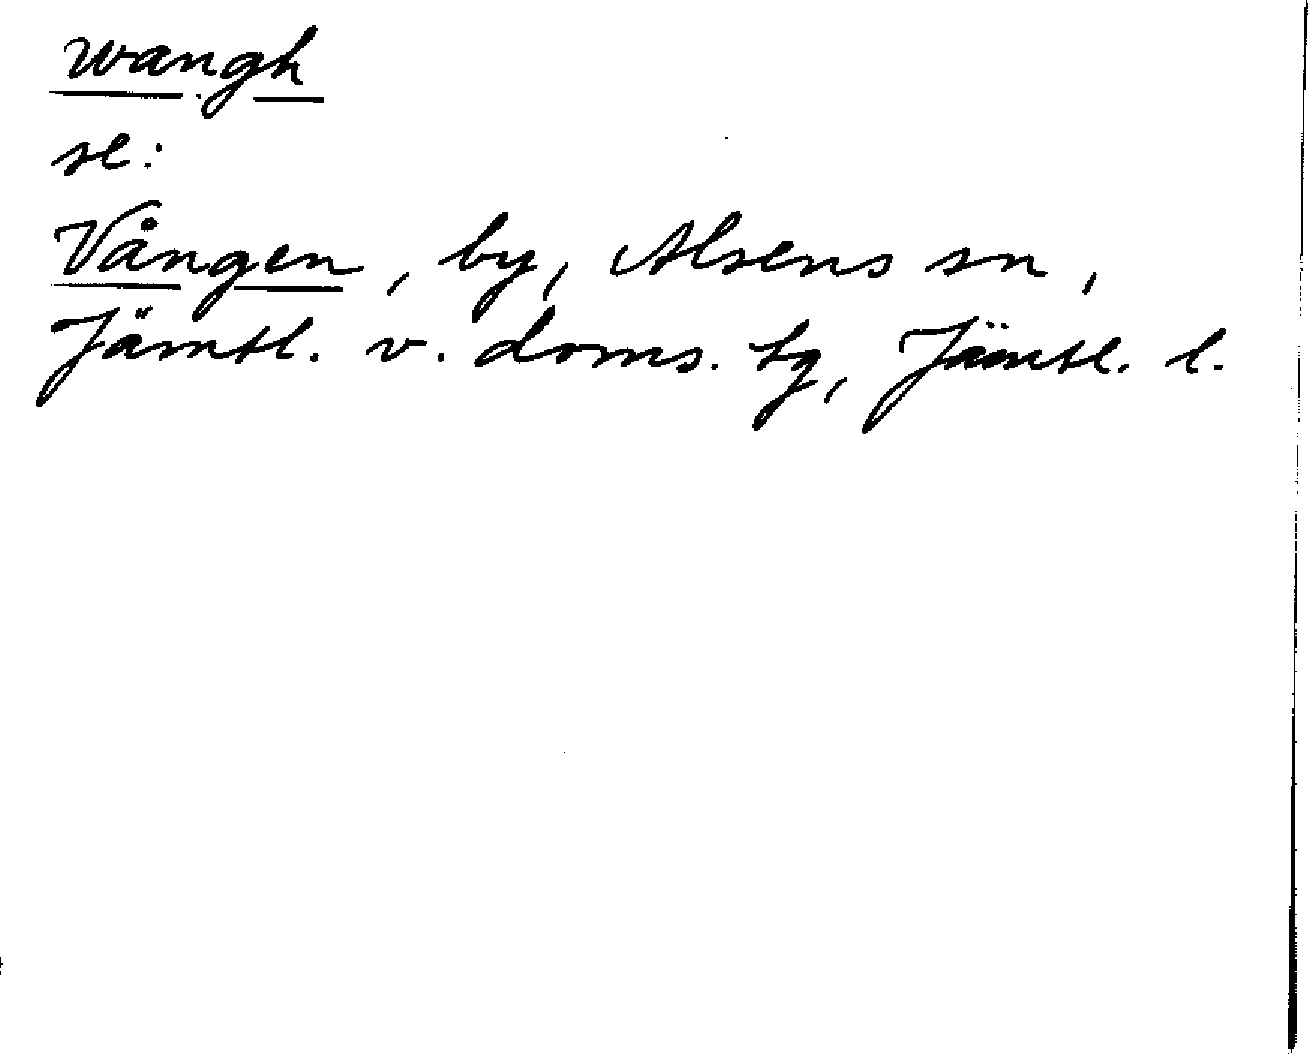 wangh
se:
Vången, by, Alsens sn,
Jämtl. v. doms. tg, Jämtl. l.